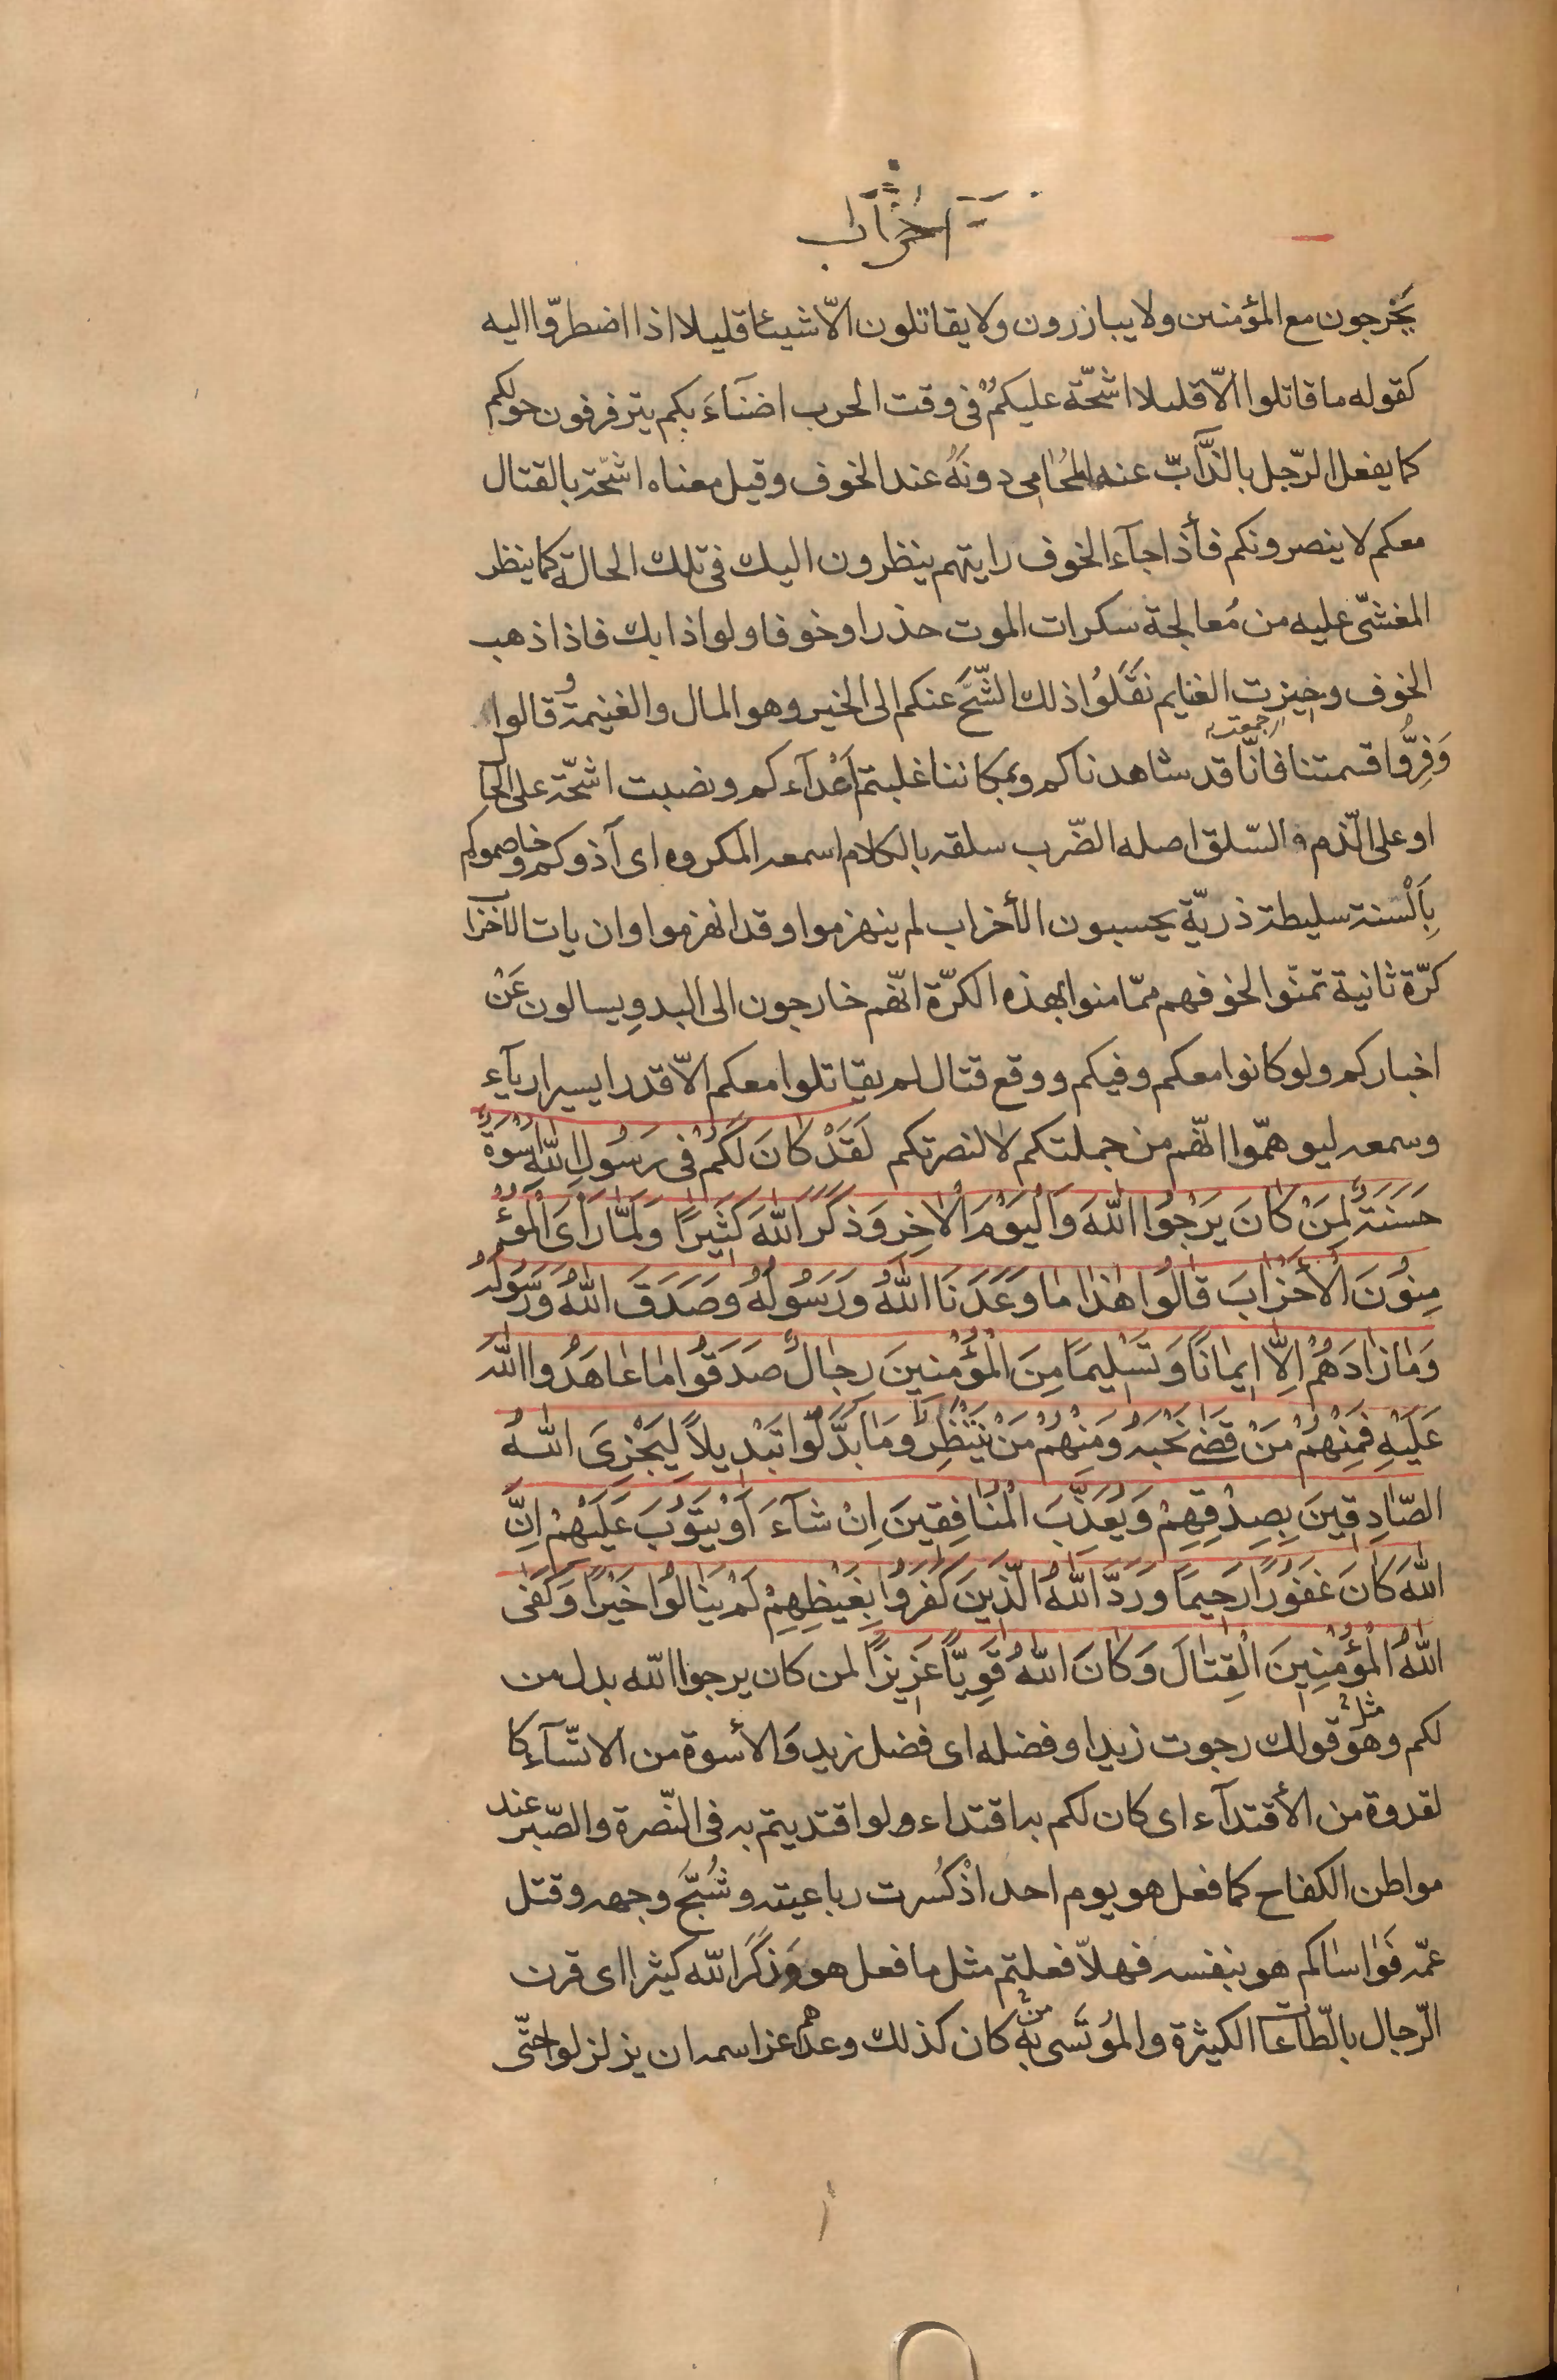 احزاب
يَخْرجون مع المؤمنين ولا يبازرون ولا يقاتلون الّا شيئا قليلا اذا اضطرّوا اليه
كقوله ما قاتلوا الّا قليلا اشحّة عليكمْ فى وقت الحرب اضنآءَ بكم يترفرفون حولكم
كما يفعل الرّجل بالذّآبّ عنه المحُامى دونهُ عند الخوف وقيل معناه اشحّة بالقتال
معكم لا ينصرونكم فأذا جآء الخوف رايتهم ينظرون اليك فى تلك الحالة كما ينظر
المغشىّ عليه من مُعالجة سكرات الموت حذرا وخوفا ولواذا بك فاذا ذهب
الخوف وحيزت الغنايم نقَلُوا ذلك الشّحَّ عنكم الى الخير وهو المال والغنيمة و قالوا
جمعت
وَفِرُّوا قسمتنا فانّا قد شاهدناكم وبمكاننا غلبتم اَعْدآءكم ونصبت اشحّة على الحا
او على الّذم والسّلق اصله الضّرب سلقه بالكلام اسمعه المكروه اى آذوكم وخاصموكم
بِاَلْسنة سليطة ذريّة يحسبون الأخزاب لم ينهزموا وقد انهزموا وان يات الأخزا
كرّة ثانية تمنّوا لخوفهم ممّا منوا بهذه الكرّة انّهم خارجون الى البدوِ يسالون عَنْ
اخباركم ولو كانوا معكم وفيكم ووقع قتال لم يقاتلوا معكم الّا قدرا يسيرا ريآء
وسمعه ليوهمّوا انّهم من جملتكم لا لنصرتكم لَقَدْ كَانَ لَكُمْ فى رَسُولِ اللّهِ اُسْوَةٌ
حَسَنَةٌ لِمَنْ كانَ يَرْجُوا اللّهَ وَالْيَوْمَ الْاخِرِ وَذَكَرَ اللّهَ كَثِيرًا وَلَمّا رَأىَ الْمُؤْ
مِنُونَ الْأَخْزابَ قالُوا هذا ما وَعَدَنَا اللّهُ وَرَسُولُهُ وَصَدَقَ اللّهُ وَرَسُولُهُ
وَما زادَهُمْ اِلّا ايمانًا وَتَسْليمًا مِنَ الْمُؤْمِنينَ رِجالٌ صَدَقُوا ما عاهَدُوا اللّهَ
عَلَيْهِ فَمِنْهُمْ مَنْ قَضى نَحْبَهُ وَمِنْهُمْ مَنْ يَنْتَظِرُ وَما بَدَّلُوا تَبْديلًا لِيَجْزِىَ اللّهُ
الصّادِقينَ بِصِدْقِهِمْ وَيُعَذِّبَ الْمُنافِقينَ اِنْ شآءَ اَوْ يَتُوبَ عَلَيْهِمْ اِنَّ
اللّهَ كانَ غَفُورًا رَحيمًا وَرَدَّ اللّهُ الَّذينَ كَفَرُوا بِغَيْظِهِمْ لَمْ يَنالُوا خَيْرًا وَكَفَى
اللّهُ الْمُؤْمِنينَ الْقِتالَ وَكانَ اللّهُ قَوِيًّا عَزيزًا لمن كان يرجوا اللّه بدل من
لكم وهو مثل قولك رجوت زيدا وفضله اى فضل زيد وَالأسوة من الاتسّآء كا
لقدوة من الأقتدآء اى كان لكم به اقتداء ولو اقتديتم به فى النّصرة والصّبر عند
مواطن الكفاح كما فعل هو يوم احد اذْ كُسرت رباعيته وشُجَّ وجهه وقتل
عمّه فَوَاساكم هو بنفسه فهلاّ فعلتم مثل ما فعل هو وَذكَرَ اللّه كثيرا اى قرن
الرّجال بالطّاعات الكثيرة والمؤتَسى بهِ من كان كذلك وعدهم عز اسمه ان يزلزلوا حتّى